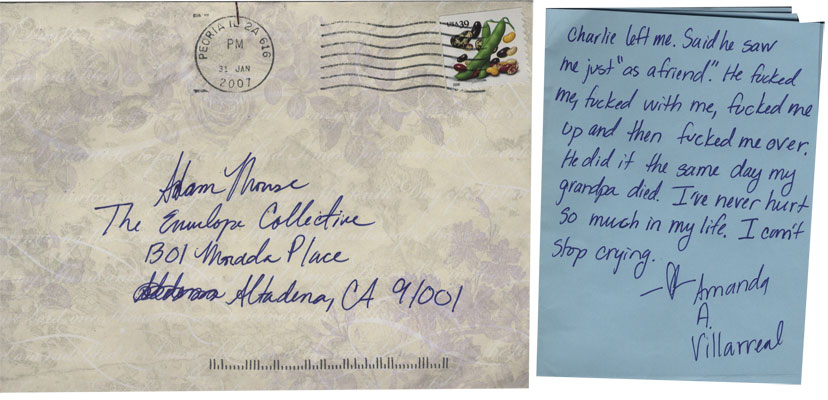 PEORIA IL 2A 616
PM
31 JAN
2007
USA 39
Adam
The Envelope Collective
1301 Morada Place
Altadena, CA 91001
Charlie left me. Said he saw
me just "as a friend". He fucked
me, fucked with me, fucked me
up and then fucked me over.
He did it the same day my
grandpa died. I've never hurt
so much in my life. I can't
stop crying.
Amanda
A.
Villarreal